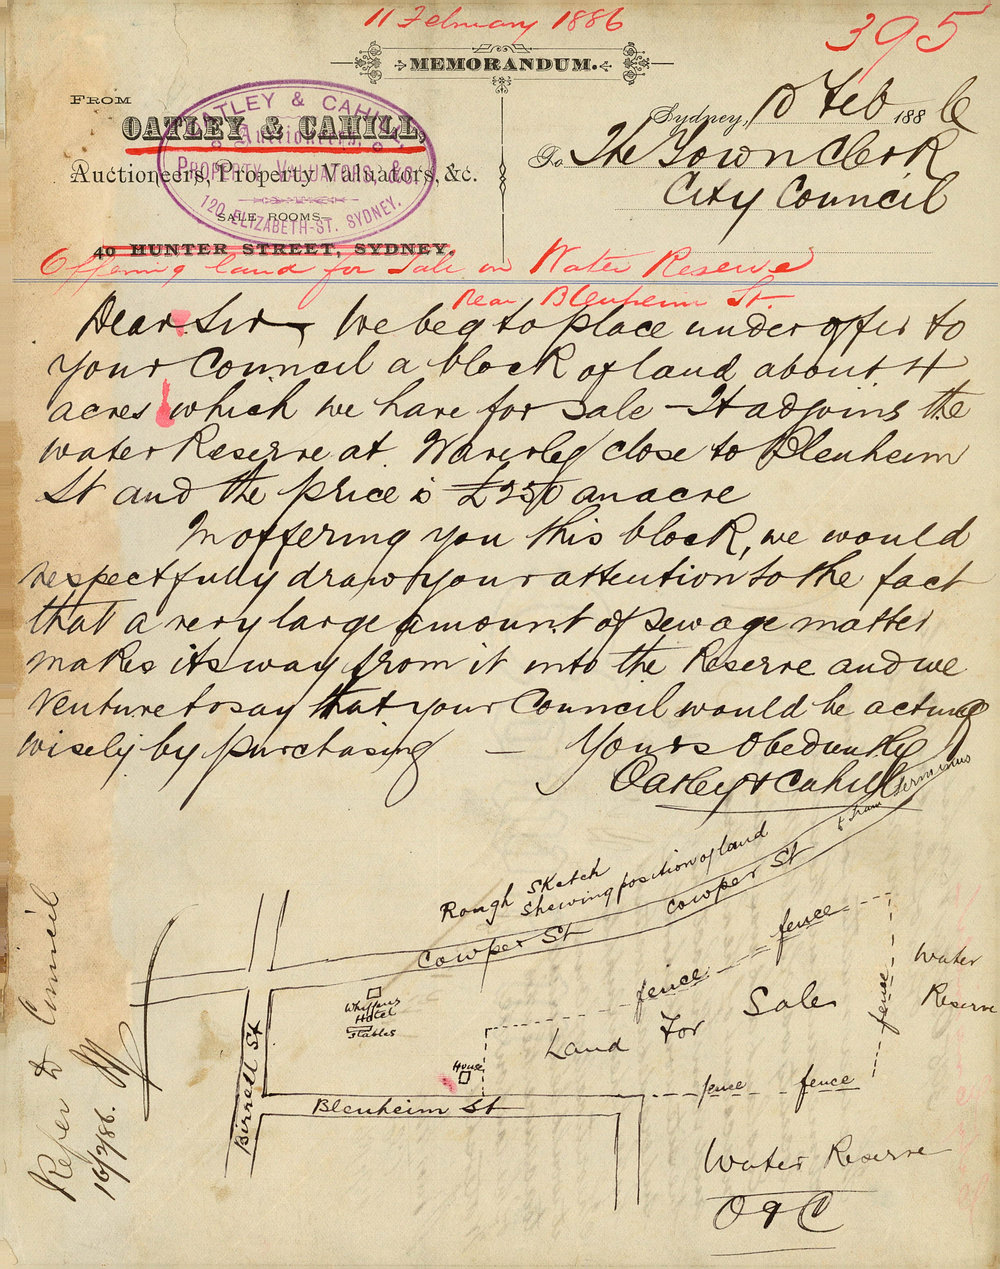 11 February 1886
395
MEMORANDUM.
FROM
OATLEY & CAHILL,
Auctioneers, Property Valuators, &c.
SALE ROOMS
40 HUNTER STREET, SYDNEY.
OATLEY & CAHILL,
Auctioneers,
PROPERTY VALUATORS, &C.
120 ELIZABETH-ST. SYDNEY.
Sydney, 10 Feb 1886
To The Town Clerk
City Council
Offering land for Sale on Water Reserve
near Blenheim St.
Dear Sir, We beg to place under offer to
your Council a block of land about 4
acres which we have for sale - It adjoins the
water Reserve at Waverley close to Blenheim
St and the price is £250 an acre
In offering you this block, we would
respectfully draw your attention to the fact
that a very large amount of sewage matter
makes its way from it into the Reserve and we
venture to say that your Council would be acting
wisely by purchasing — Yours obediently
Oatley & Cahill
Rough Sketch
Shewing position of land
Cowper St
Cowper St
& Tram Terminus
fence
fence
fence
Water
Reserve
Whippens
Hotel
Stables
House
Land For Sale
fence fence
Birrell St
Blenheim St
Water Reserve
O & C
Refer to Council
16/2/86.